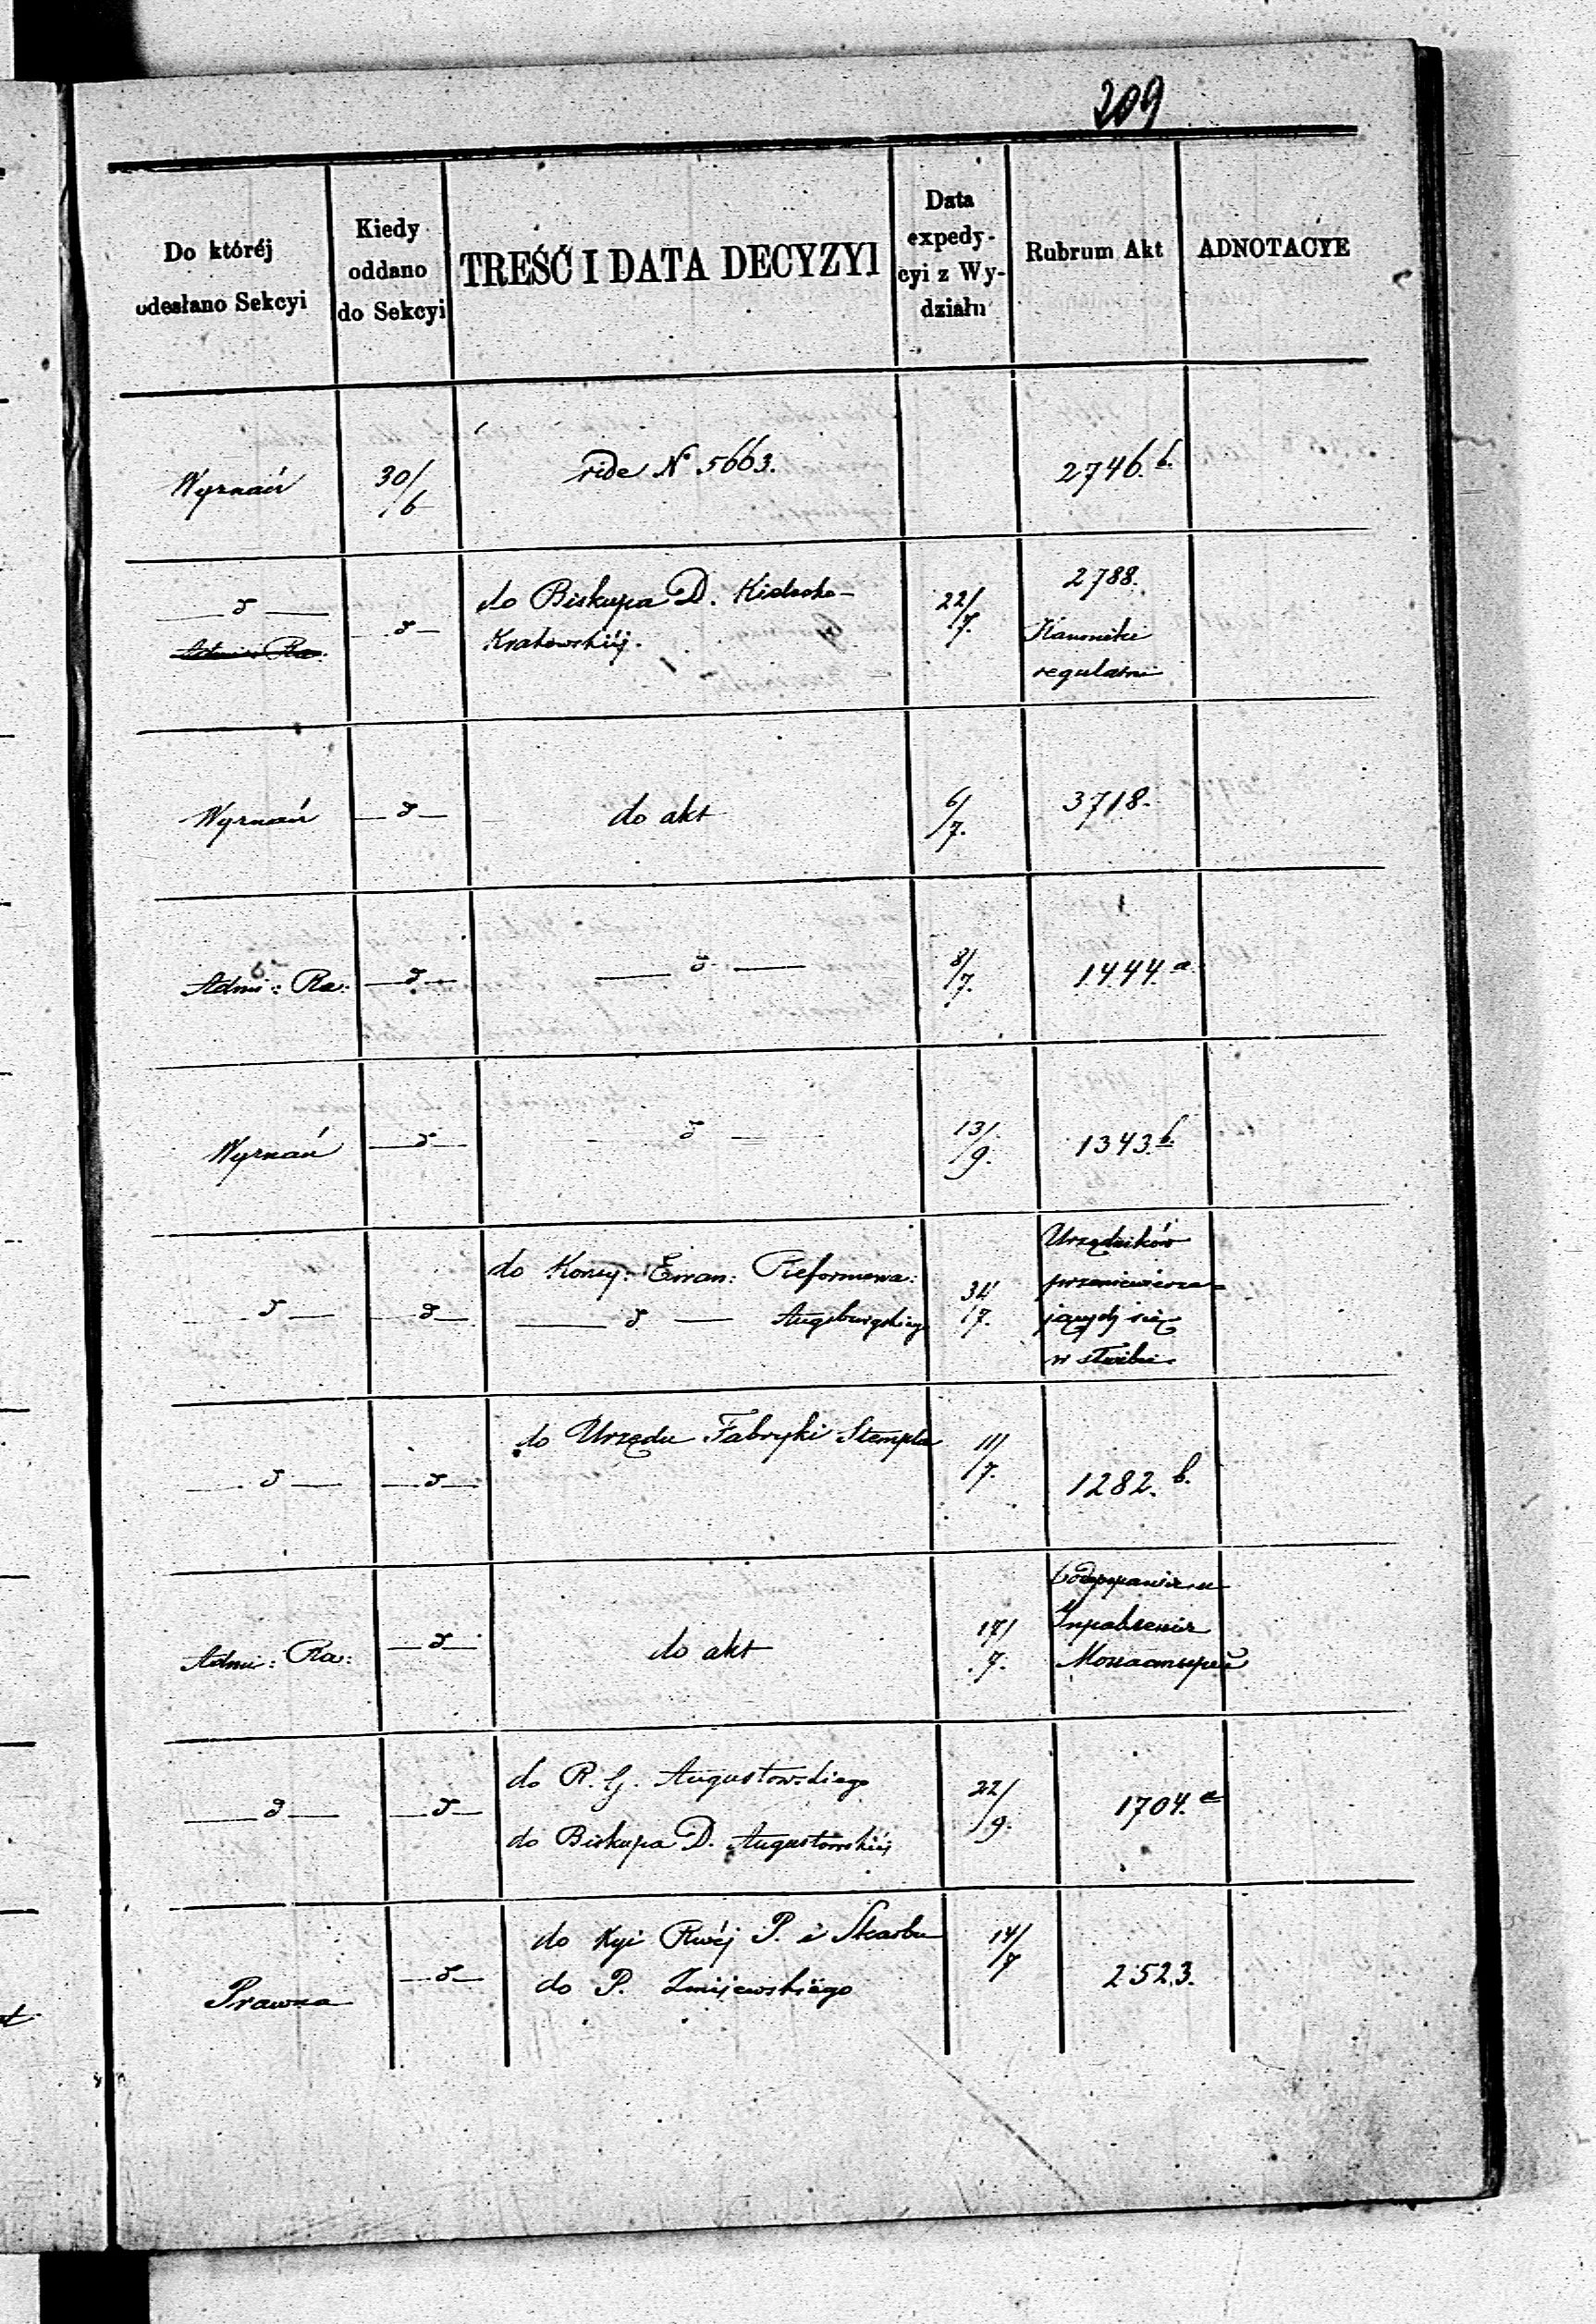 209
Do któréj
odesłano Sekcyi
Kiedy
oddano
do Sekcyi
TREŚĆ I DATA DECYZYI
Data
expedy-
cyi z Wy-
działu
Rubrum Akt
ADNOTACYE
Wyznań
30/6
vide N 5663.
2746.b.
— d —
— d —
do Biskupa D. Kielecko-
Krakowskiéj.
22/7.
2788.
Kanonicki
regularni
Wyznań
— d —
do akt
6/7.
3718.
Admi: Ra:
— d —
— d —
8/7.
1444.a.
Wyznań
— d —
— d —
13/9.
1343.b.
— d —
— d —
do Konsy: Ewan: Reformowa:
— d — Augsburgskiego
31/7.
Urzędników
przeniewierza-
jących się
w służbie
— d —
— d —
do Urzędu Fabryki Stempla
11/7.
1282.b.
Admi: Ra:
— d —
do akt
17/7.
— d —
— d —
do R. G. Augustowskiego
do Biskupa D. Augustowskiéj
22/9.
1704.a
Prawna
— d —
do Kyi Rwéj P. i Skarbu
do P. Żmijewskiégo
14/7
2523.